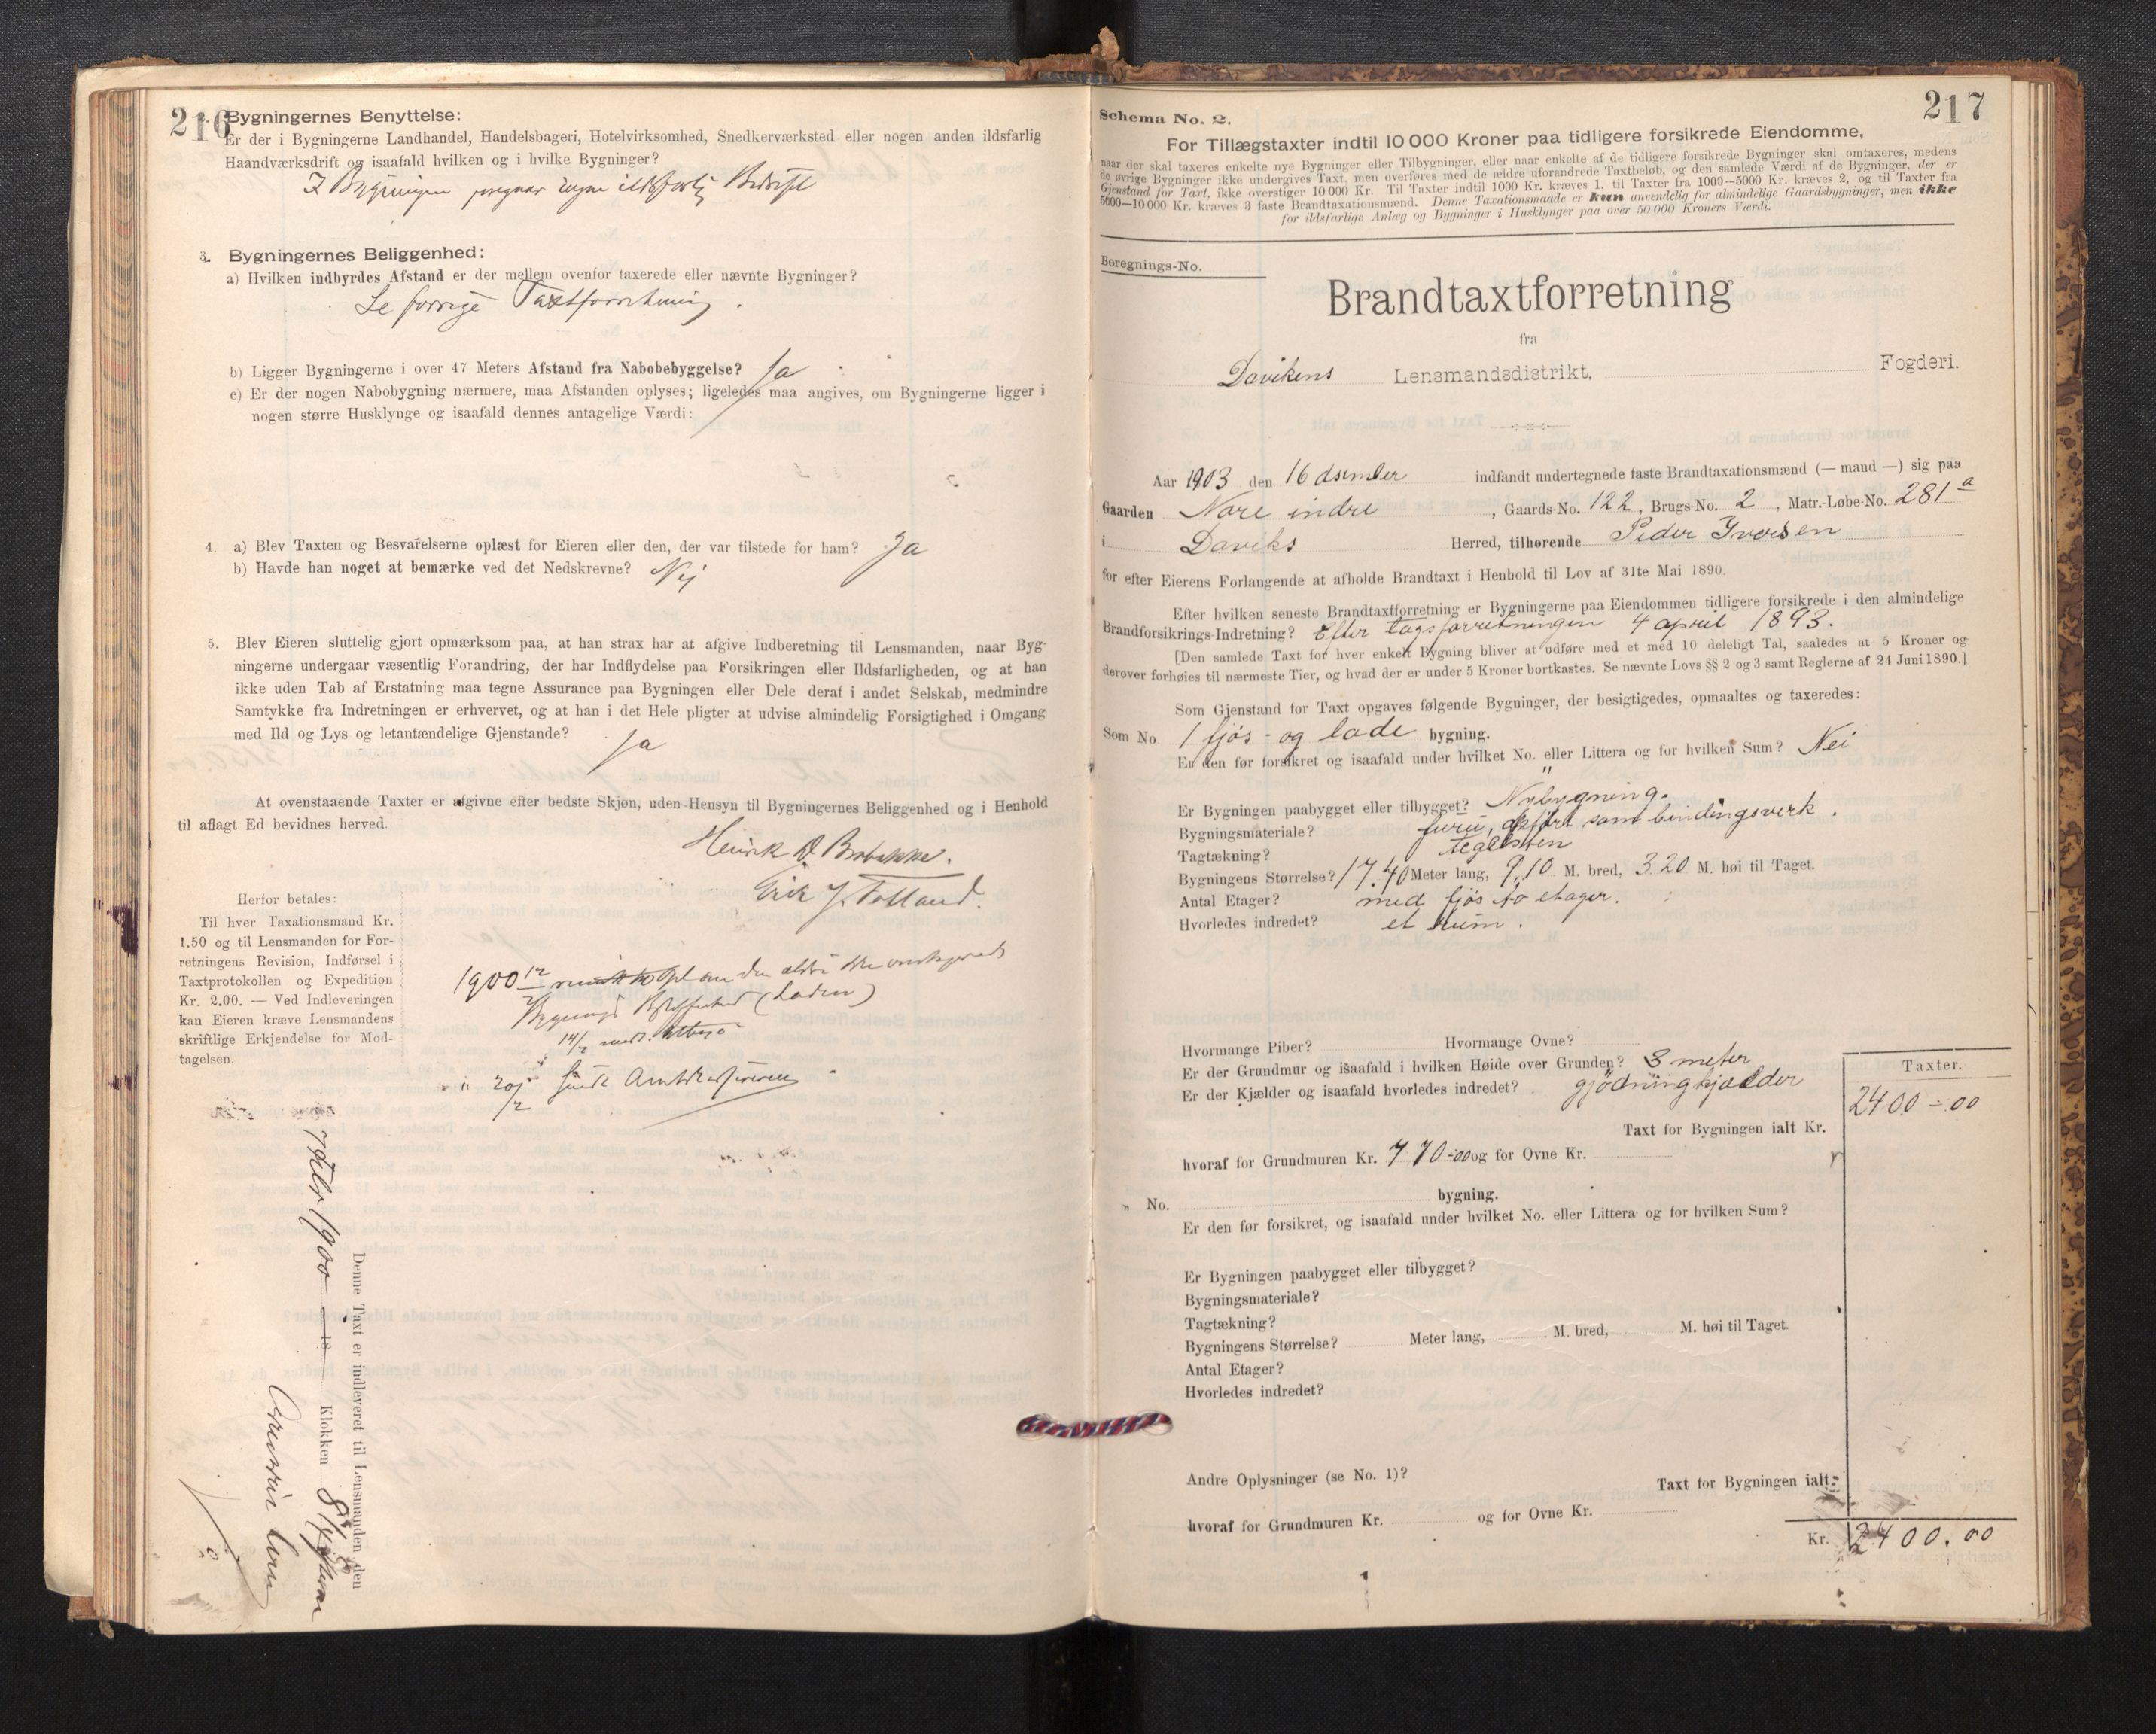 216
2. Bygningernes Benyttelse:
Er der i Bygningerne Landhandel, Handelsbageri, Hotelvirksomhed, Snedkerværksted eller nogen anden ildsfarlig
Haandværksdrift og isaafald hvilken og i hvilke Bygninger?
I Bygningen ildsfarlig Bedrift
3. Bygningernes Beliggenhed:
a) Hvilken indbyrdes Afstand er der mellem ovenfor taxerede eller nævnte Bygninger?
Se forrige Taxtforretning.
b) Ligger Bygningerne i over 47 Meters Afstand fra Nabobebyggelse? Ja
c) Er der nogen Nabobygning nærmere, maa Afstanden oplyses; ligeledes maa angives, om Bygningerne ligger i
nogen større Husklynge og isaafald dennes antagelige Værdi:
4. a) Blev Taxten og Besvarelserne oplæst for Eieren eller den, der var tilstede for ham? Ja
b) Havde han noget at bemærke ved det Nedskrevne? Nej
5. Blev Eieren sluttelig gjort opmærksom paa, at han strax har at afgive Indberetning til Lensmanden, naar Byg-
ningerne undergaar væsentlig Forandring, der har Indflydelse paa Forsikringen eller Ildsfarligheden, og at han
ikke uden Tab af Erstatning maa tegne Assurance paa Bygningen eller Dele deraf i andet Selskab, medmindre
Samtykke fra Indretningen er erhvervet, og at han i det Hele pligter at udvise almindelig Forsigtighed i Omgang
med Ild og Lys og letantændelige Gjenstande? Ja
At ovenstaaende Taxter er afgivne efter bedste Skjøn, uden Hensyn til Bygningernes Beliggenhed og i Henhold
til aflagt Ed bevidnes herved.
Erik J. Totland.
Herfor betales:
Til hver Taxationsmand Kr.
1.50 og til Lensmanden for For-
retningens Revision, Indførsel i
Taxtprotokollen og Expedition
Kr. 2,00. — Ved Indleveringen
kan Eieren kræve Lensmandens
skriftlige Erkjendelse for Mod-
tagelsen.
1900
(Laden)
Denne Taxt er indleveret til Lensmanden den
1900 18 Klokken 8
217
Schema No. 2.
For Tillægstaxter indtil 10 000 Kroner paa tidligere forsikrede Eiendomme,
naar der skal taxeres enkelte nye Bygninger eller Tilbygninger, eller naar enkelte af de tidligere forsikrede Bygninger skal omtaxeres, medens
de øvrige Bygninger ikke undergives Taxt, men overføres med de ældre uforandrede Taxtbeløb, og den samlede Værdi af de Bygninger, der er
Gjenstand for Taxt, ikke overstiger 10 000 Kr. Til Taxter indtil 1000 Kr. kræves 1, til Taxter fra 1000—5000 Kr. kræves 2, og til Taxter fra
5000—10 000 Kr. kræves 3 faste Brandtaxationsmænd. Denne Taxationsmaade er kun anvendelig for almindelige Gaardsbygninger, men ikke
for ildsfarlige Anlæg og Bygninger i Husklynger paa over 50 000 Kroners Værdi.
Beregnings-No.
Brandtaxtforretning
fra
Davikens Lensmandsdistrikt, Fogderi.
Aar 1903 den 16 desember indfandt undertegnede faste Brandtaxationsmænd (— mand —) sig paa
Gaarden Nore indre, Gaards-No. 122, Brugs-No. 2, Matr.-Løbe-No. 281 a
i Daviks Herred, tilhørende Peder Iversen
for efter Eierens Forlangende at afholde Brandtaxt i Henhold til Lov af 31te Mai 1890.
Efter hvilken seneste Brandtaxtforretning er Bygningerne paa Eiendommen tidligere forsikrede i den almindelige
Brandforsikrings-Indretning? Efter tagsforretningen 4 april 1893.
[Den samlede Taxt for hver enkelt Bygning bliver at udføre med et med 10 deleligt Tal, saaledes at 5 Kroner og
derover forhøies til nærmeste Tier, og hvad der er under 5 Kroner bortkastes. Se nævnte Lovs §§ 2 og 3 samt Reglerne af 24 Juni 1890.]
Som Gjenstand for Taxt opgaves følgende Bygninger, der besigtigedes, opmaaltes og taxeredes:
Som No. 1 fjøs- og lade bygning.
Er den før forsikret og isaafald under hvilket No. eller Littera og for hvilken Sum? Nei
"
Er Bygningen paabygget eller tilbygget? Nybygning.
Bygningsmateriale? furu, opført som bindingsverk.
Tagtækning? teglsten
Bygningens Størrelse? 17.40 Meter lang, 9,10 M. bred, 3.20 M. høi til Taget.
Antal Etager? med fjøs to etager.
Hvorledes indredet? et rum.
Hvormange Piber? Hvormange Ovne?
Er der Grundmur og isaafald i hvilken Høide over Grunden? 3 meter
Er der Kjælder og isaafald hvorledes indredet? gjødningkjælder
Taxter.
2400 = 00
Taxt for Bygningen ialt Kr.
hvoraf for Grundmuren Kr. 770-00 og for Ovne Kr.
" No. bygning.
Er den før forsikret, og isaafald under hvilket No. eller Littera og for hvilken Sum?
Er Bygningen paabygget eller tilbygget?
Bygningsmateriale?
Tagtækning?
Bygningens Størrelse? Meter lang, M. bred, M. høi til Taget.
Antal Etager?
Hvorledes indredet?
Andre Oplysninger (se No. 1)?
Taxt for Bygningen ialt:
hvoraf for Grundmuren Kr. og for Ovne Kr.
Kr. 2400.00